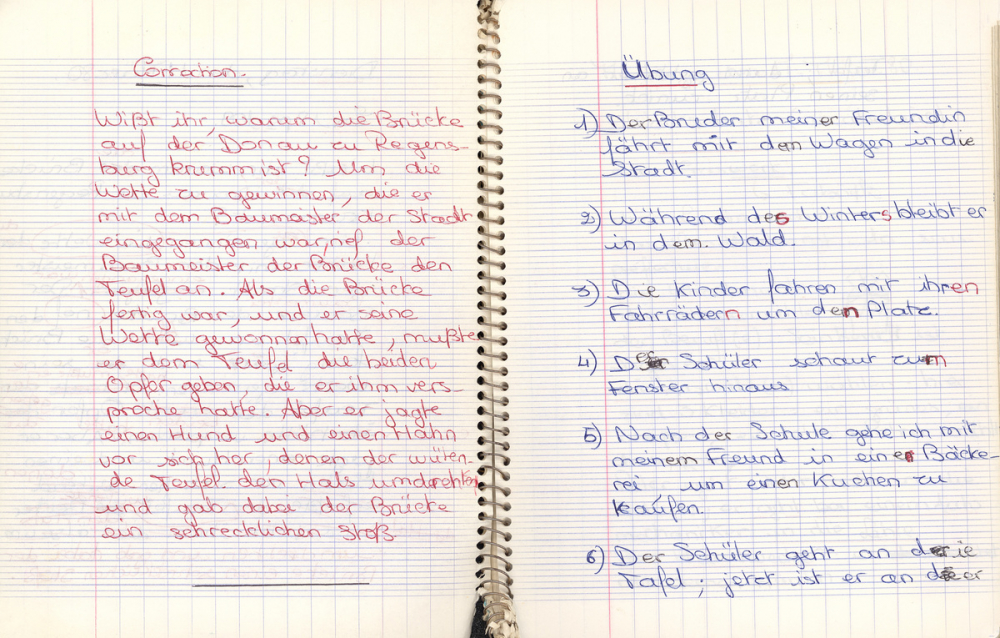 Correction.
Wißt ihr, warum die Brücke
auf der Donau zu Regens-
burg krumm ist? Um die
Wette zu gewinnen, die er
mit dem Baumeister der Stadt
eingegangen war, rief der
Baumeister der Brücke den
Teufel an. Als die Brücke
fertig war, und er seine
Wette gewonnen hatte, mußte
er dem Teufel die beiden
Opfer geben, die er ihm vers-
proche hatte. Aber er jagte
einen Hund und einen Hahn
vor sich her, denen der wüten-
de Teufel den Hals umdrehte,
und gab dabei der Brücke
ein schrecklichen Stoß
Übung
1) Der Bruder meiner Freundin
fährt mit dem Wagen in die
Stadt.
2) Während des Winters bleibt er
in dem Wald.
3) Die Kinder fahren mit ihren
Fahrrädern um den Platz.
4) Der Schüler schaut zum
Fenster hinaus
5) Nach der Schule gehe ich mit
meinem Freund in eine Bäcke-
rei um einen Kuchen zu
kaufen.
6) Der Schüler geht an die
Tafel; jetzt ist er an der